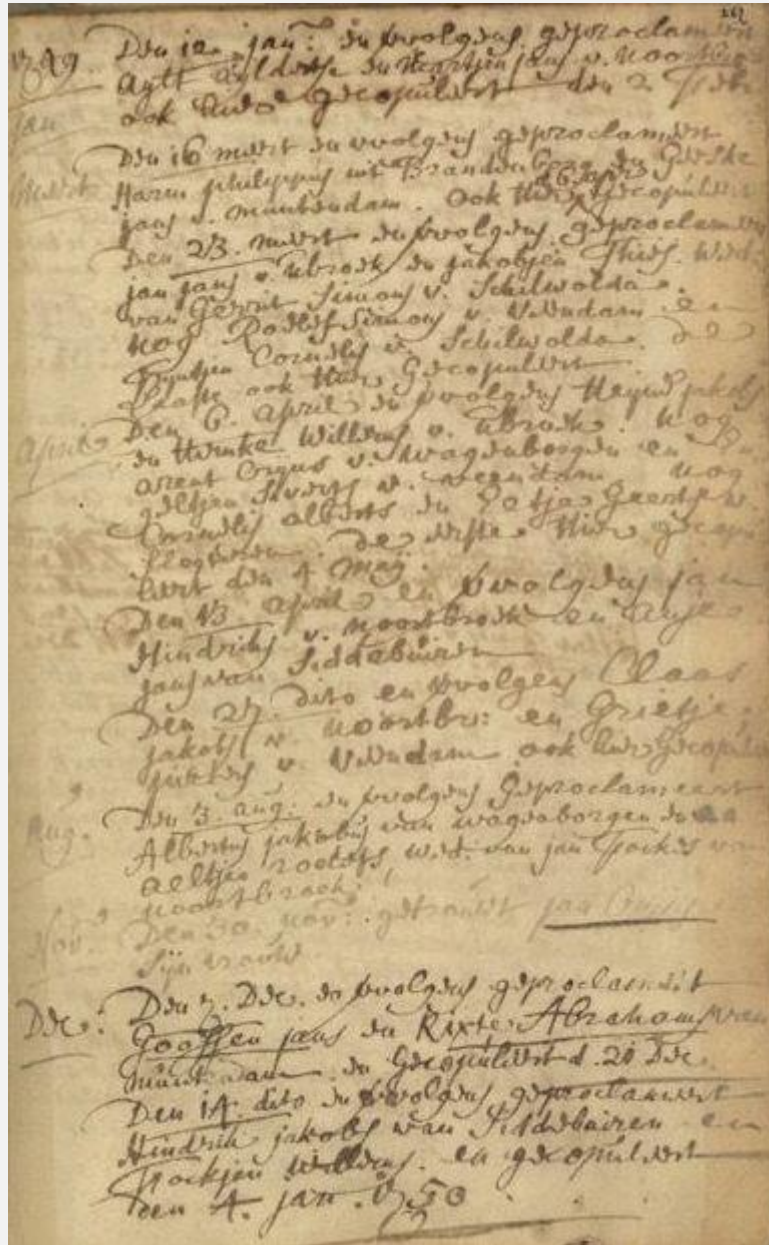 262
1749. Den 12. jan: en vvolgens geproclameert
Jan
ook hier gecopuleert den 2. Feb
Meert Den 16 meert en vvolgens geproclameert
Harm philippus uit Brandenborg en Geeske
jans v. muntendam. Ook hier gecopuleert
Den 23. meert en vvolgens geproclameert
jan jans v. Ubroek en jakobjen Thies. wed.
van Gerrit Simons v. Schilwolda.
nog Roelf Simons v. Veendam en
Trijntjen Cornelis v. Schilwolda. de
ook hier Gecopuleert.
April Den 6. April en vvolgens jakobs
en Hemke Willems v. Ubroek. nog
arent v. wagenborgen en
geltjen Siverts v. veendam nog
Cornelis alberts en Geerts v.
Slogteren. de eerste hier gecopu
leert den 4 maij.
Den 13. april en vvolgens jan
Hindriks v. noortbroek en antje
jans van Siddebuiren
Den 27. dito en vvolgens Claas
jakobs v. noortbr: en Grietje
v. Veendam ook hier Gecopule
Aug. Den 3. aug: en vvolgens Geproclameert
Albertus jakobus van wagenborgen en
Aeltjen roelefs, wed. van jan Fockes van
noortbroek.
Nov. Den 30. nov: getrouwt jan
Sijn vrouw
Dec: Den 7. Dec. en vvolgens geproclameert
Goossen jans en Rixte Abrahams van
muntendam en Gecopuleert d. 21 Dec.
Den 14. dito en vvolgens geproclameert
Hindrik jakobs van Siddebuiren en
Fockjen Willems. en gecopuleert
den 4. jan. 1750